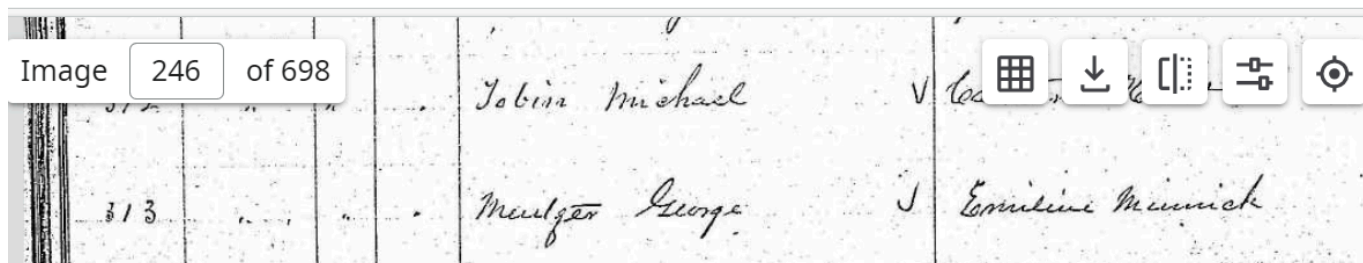 Image 246 of 698
Tobin Michael V
313 " " " " Meutzer George V Emiline Minnick